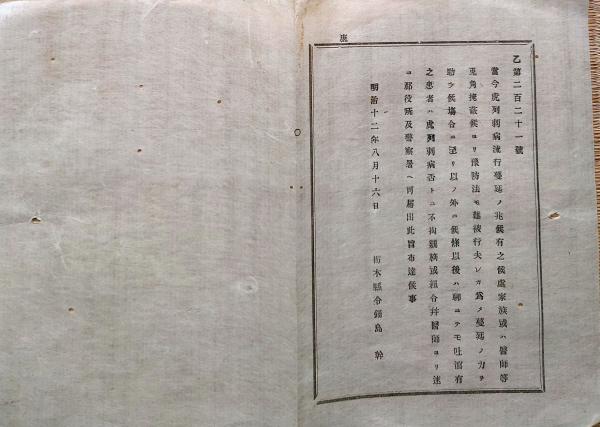 乙第二百二十一號
當今虎列剌病流行蔓延ノ兆候有之候處家族或ハ醫師等
兎角掩蔽候ヨリ豫防法モ難被行夫レカ爲メ蔓延ノ力ヲ
助ケ候場合ニ至リ以ノ外ニ候條以後ハ聊ニテモ吐瀉有
之患者ハ虎列剌病否トニ不拘親族或組合幷醫師ヨリ速
ニ郡役所及警察署ヘ可届出此旨布達候事
明治十二年八月十六日
栃木縣令鍋島 幹